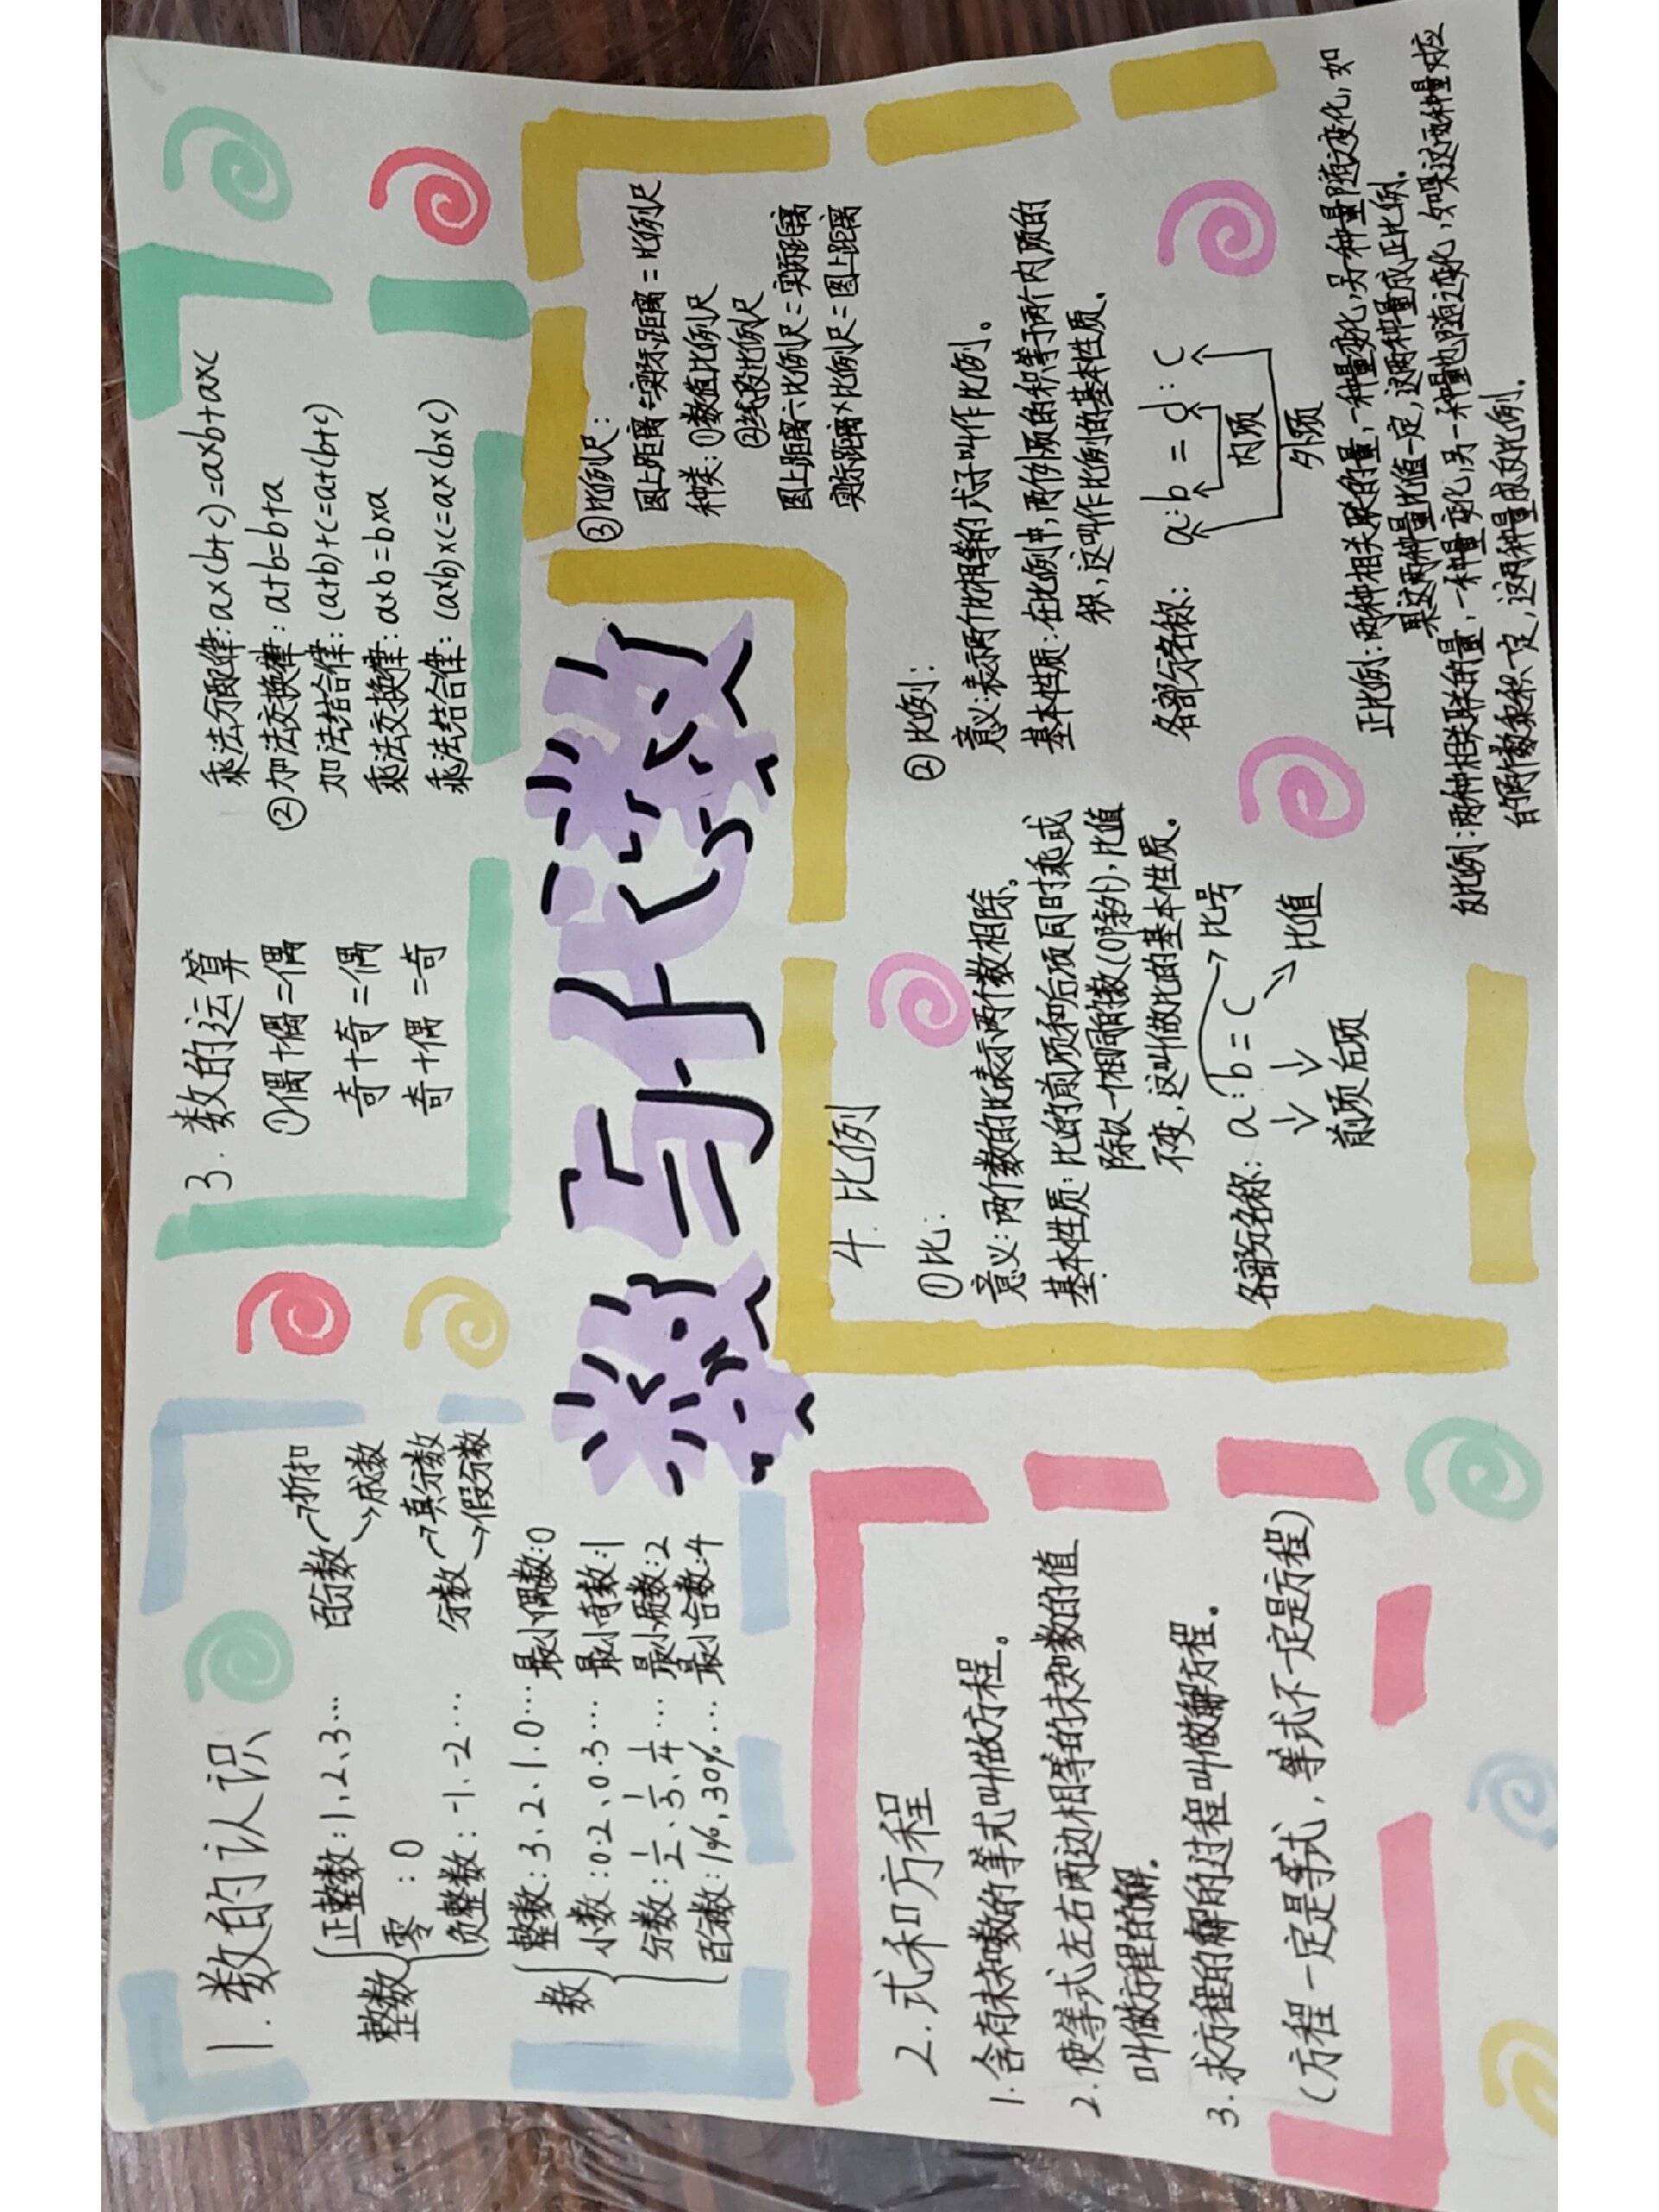 数与代数
1.数的认识
整数{正整数:1、2、3…
零:0
负整数:-1、-2…
百分数→折扣
→成数
分数→真分数
→假分数
数{整数:3、2、1、0…
小数:0.2、0.3…
分数:1/2、1/3、1/4…
百分数:1%、30%…
最小偶数:0
最小奇数:1
最小质数:2
最小合数:4
2.式和方程
1.含有未知数的等式叫做方程。
2.使等式左右两边相等的未知数的值
叫做方程的解。
3.求方程的解的过程叫做解方程。
(方程一定是等式,等式不一定是方程)
3.数的运算
①偶+偶=偶
奇+奇=偶
奇+偶=奇
乘法分配律:a×(b+c)=a×b+a×c
②加法交换律:a+b=b+a
加法结合律:(a+b)+c=a+(b+c)
乘法交换律:a×b=b×a
乘法结合律:(a×b)×c=a×(b×c)
4.比例
①比:
意义:两个数的比表示两个数相除。
基本性质:比的前项和后项同时乘或
除以一个相同的数(0除外),比值
不变,这叫做比的基本性质。
各部分名称:a:b=c
比号
比值
前项 后项
②比例:
意义:表示两个比相等的式子叫作比例。
基本性质:在比例中,两个外项的积等于两个内项的
积,这叫作比例的基本性质。
各部分名称:a:b=d:c
内项
外项
③比例尺:
图上距离÷实际距离=比例尺
种类:①数值比例尺
②线段比例尺
图上距离÷比例尺=实际距离
实际距离×比例尺=图上距离
正比例:两种相关联的量,一种量变化,另一种量随之变化,如
果这两种量比值一定,这两种量成正比例。
反比例:两种相关联的量,一种量变化,另一种量也随之变化,如果这两种量对应
的两个数乘积一定,这两种量成反比例。